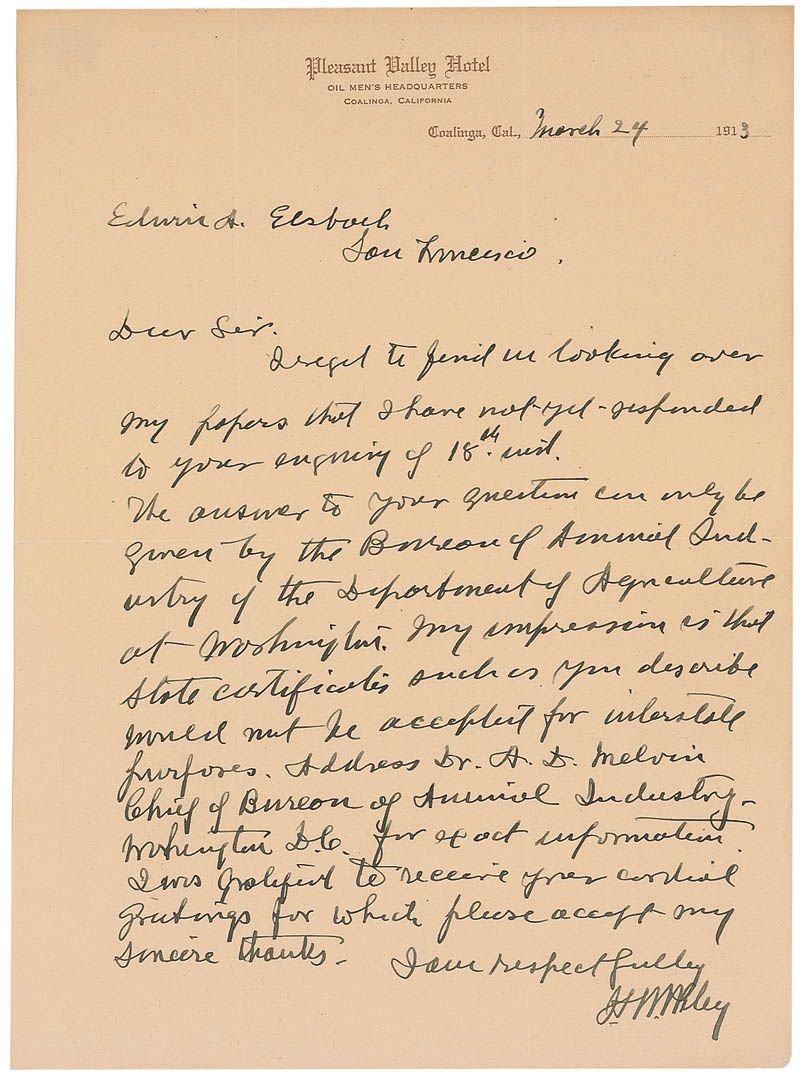 Pleasant Valley Hotel
OIL MEN'S HEADQUARTERS
COALINGA, CALIFORNIA
Coalinga, Cal., March 24 1913
Edwin A. Elsbach
San Francisco.
Dear Sir.
I regret to find in looking over
my papers that I have not yet responded
to your enquiry of 18th. inst.
The answer to your question can only be
given by the Bureau of Animal Ind-
ustry of the Department of Agriculture
at Washington. My impression is that
State certificates such as you describe
would not be accepted for interstate
purposes. Address Dr. A. D. Melvin
Chief of Bureau of Animal Industry-
Washington D.C. for exact information.
I was gratified to receive your cordial
greetings for which please accept my
sincere thanks-
I am respectfully
H W Wiley